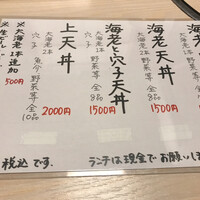 海老天丼
大海老2本
野菜等 全8品
1500円
海老と穴子天丼
大海老
穴子
野菜等 全8品
1500円
上天丼
大海老2本
穴子
魚介 野菜等 全10品
2000円
※大海老1本追加
500円
税込です。
ランチは現金でお願いし